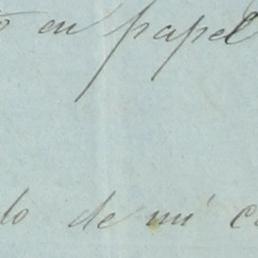 en papel
do de mi